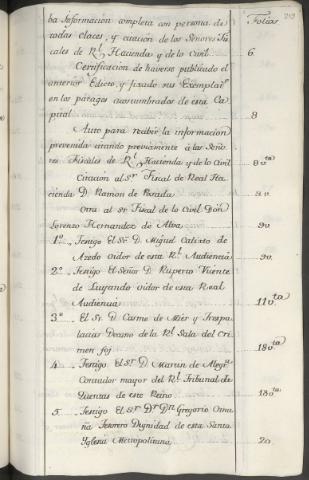 Folios
ba Informacion completa con personas de
todas clases, y citacion de los Señores Fis
cales de Rl. Hacienda y de lo Civil 6
Certificacion de haverse publicado el
anterior Edicto, y fixado sus Exemplares
en los parages acostumbrados de esta Ca
pital 8
Auto para recibir la informacion
prevenida citando previamente á los Seño
res Fiscales de Rl. Hacienda y de lo Civil 8 vta
Citacion al Sr. Fiscal de Real Ha
cienda D. Ramon de Posada 9 v.
Otra al Sr. Fiscal de lo Civil Don
Lorenzo Hernandez de Alva 9v
1º Testigo El Sr. D. Miguel Calixto de
Azedo oidor de esta Rl. Audiencia 9v.
2º Testigo El Señor D. Ruperto Vicente
de Luyando oidor de esta Real
Audiencia 11 vta
3º El Sr. D. Cosme de Mier y Trespa
lacios Decano de la Rl. Sala del Cri
men 18 vta
4 Testigo El Sr. D. Martin de Alegria
Contador mayor del Rl. Tribunal de
Quentas de este Reino 18 vta
5 Testigo El Sr. Dr. Dn. Gregorio Oma
ña Tesorero Dignidad de esta Santa
Yglesia Metropolitana 20